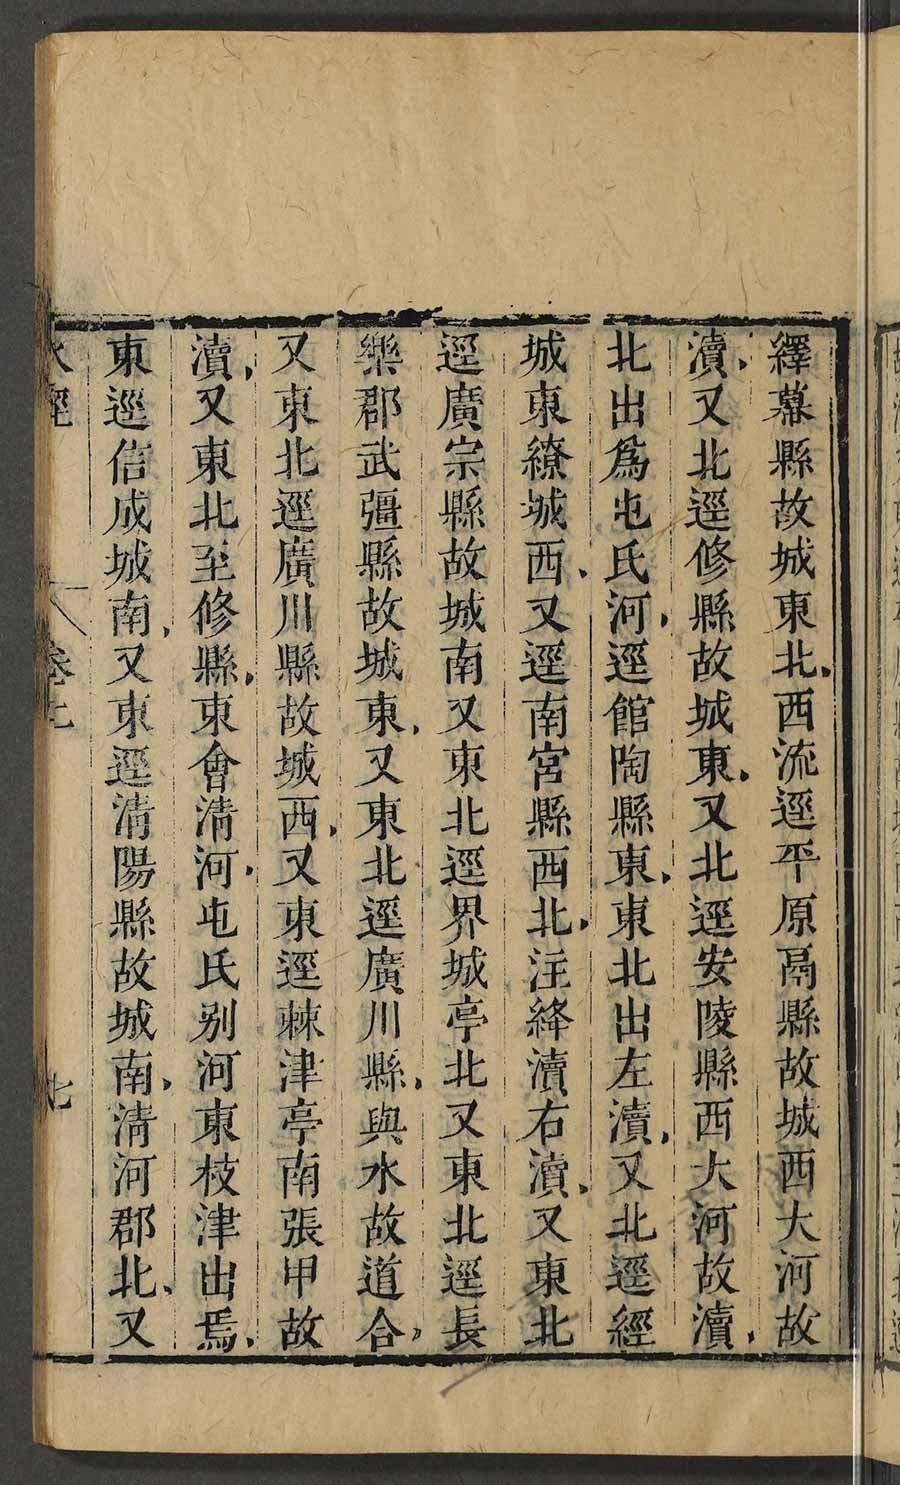 繹幕縣故城東北西流逕平原鬲縣故城西大河故
瀆又北逕修縣故城東又北逕安陵縣西大河故瀆
北出爲屯氏河逕館陶縣東東北出左瀆又北逕經
城東繚城西又逕南宮縣西北注絳瀆右瀆又東北
逕廣宗縣故城南又東北逕界城亭北又東北逕長
樂郡武彊縣故城東又東北逕廣川縣與水故道合
又東北逕廣川縣故城西又東逕棘津亭南張甲故
瀆又東北至修縣東會清河屯氏别河東枝津出焉
東逕信成城南又東逕清陽縣故城南清河郡北又
水經 卷 七